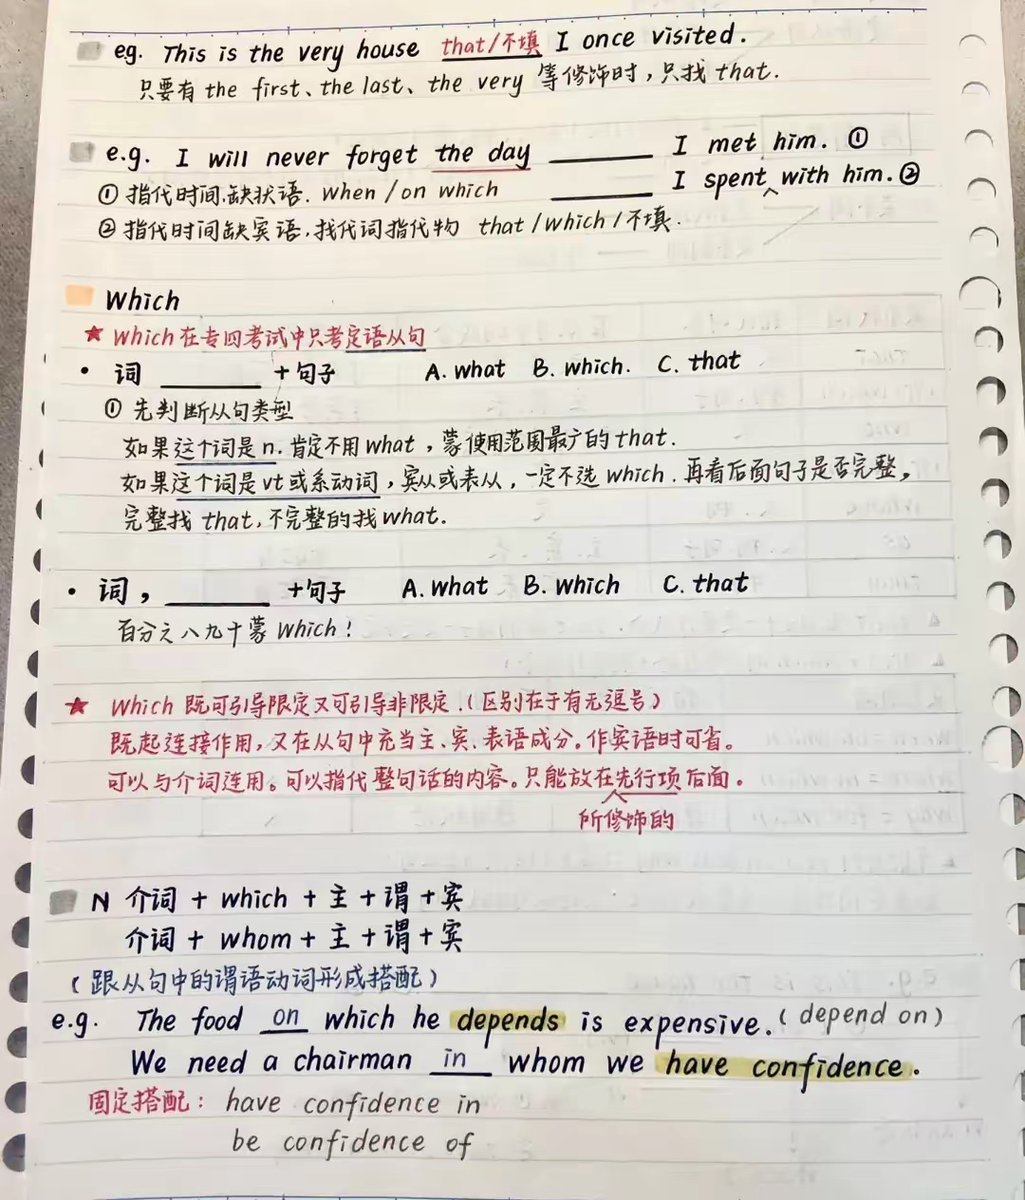 eg. This is the very house that/不填 I once visited.
只要有 the first、the last、the very 等修饰时，只找 that.
e.g. I will never forget the day ______ I met him. ①
① 指代时间缺状语. when / on which ______ I spent ^ with him. ②
② 指代时间缺宾语，找代词指代物 that / which / 不填.
Which
★ Which在专四考试中只考定语从句
• 词 ______ +句子 A. what B. which. C. that
① 先判断从句类型
如果这个词是 n. 肯定不用what，蒙使用范围最广的that.
如果这个词是vt或系动词，宾从或表从，一定不选which. 再看后面句子是否完整，
完整找 that, 不完整的找what.
• 词，______ +句子 A. what B. which C. that
百分之八九十蒙 Which！
★ Which 既可引导限定又可引导非限定.（区别在于有无逗号）
既起连接作用，又在从句中充当主、宾、表语成分。作宾语时可省。
可以与介词连用。可以指代整句话的内容。只能放在先行项后面.
所修饰的
N 介词 + which + 主 + 谓 + 宾
介词 + whom + 主 + 谓 + 宾
（跟从句中的谓语动词形成搭配）
e.g. The food on which he depends is expensive. (depend on)
We need a chairman in whom we have confidence.
固定搭配： have confidence in
be confidence of